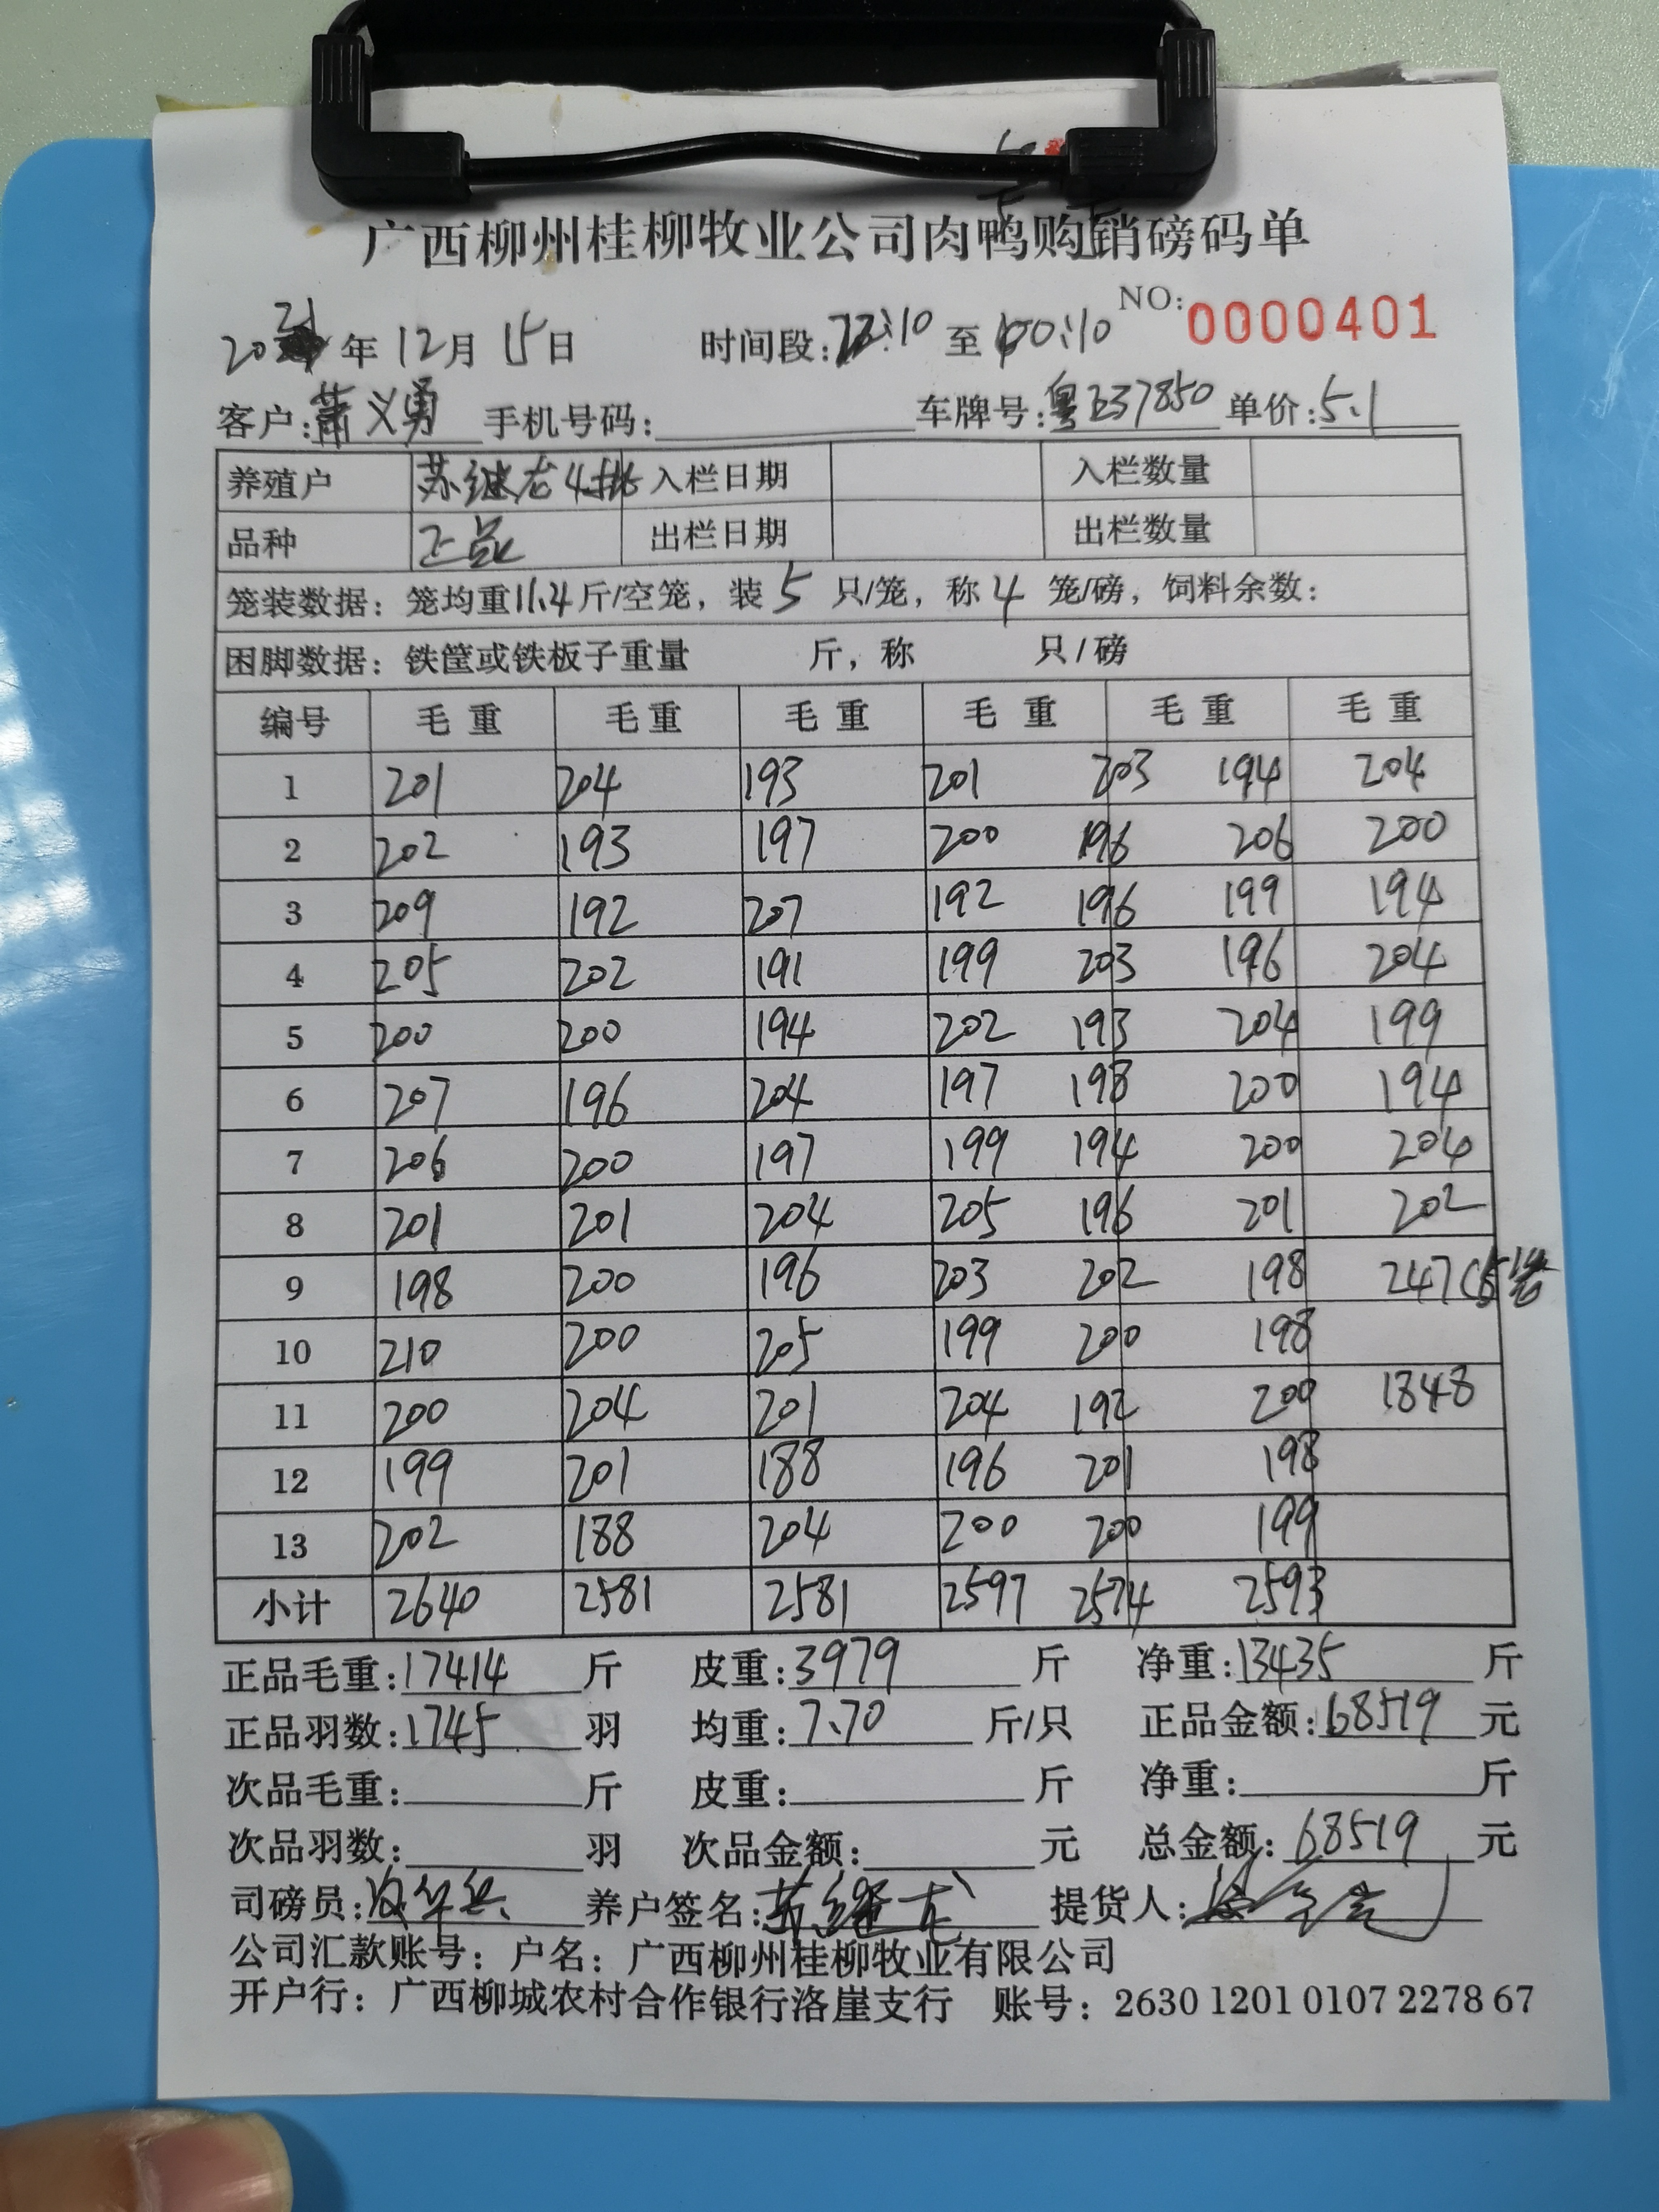 广西柳州桂柳牧业公司肉鸭购销磅码单
NO: 0000401
2021年12月15日 时间段:22:10至00:10
客户:萧义勇 手机号码: 车牌号:粤E37850 单价:5.1
养殖户 苏继龙4批 入栏日期 入栏数量
品种 正品 出栏日期 出栏数量
笼装数据: 笼均重11.4斤/空笼, 装5只/笼, 称4笼/磅, 饲料余数:
困脚数据: 铁筐或铁板子重量 斤, 称 只/磅
编号 毛重 毛重 毛重 毛重 毛重 毛重
1 201 204 193 201 203 194 204
2 202 193 197 200 196 206 200
3 209 192 207 192 196 199 194
4 205 202 191 199 203 196 204
5 200 200 194 202 193 204 199
6 207 196 204 197 198 200 194
7 206 200 197 199 194 200 204
8 201 201 204 205 196 201 202
9 198 200 196 203 202 198 247(5笼
10 210 200 205 199 200 198
11 200 204 201 204 192 200 1848
12 199 201 188 196 201 198
13 202 188 204 200 200 199
小计 2640 2581 2581 2597 2574 2593
正品毛重:17414斤 皮重:3979斤 净重:13435斤
正品羽数:1745羽 均重:7.70斤/只 正品金额:68519元
次品毛重: 斤 皮重: 斤 净重: 斤
次品羽数: 羽 次品金额: 元 总金额:68519元
司磅员: 养户签名:苏继龙 提货人:
公司汇款账号: 户名: 广西柳州桂柳牧业有限公司
开户行: 广西柳城农村合作银行洛崖支行 账号: 2630 1201 0107 2278 67